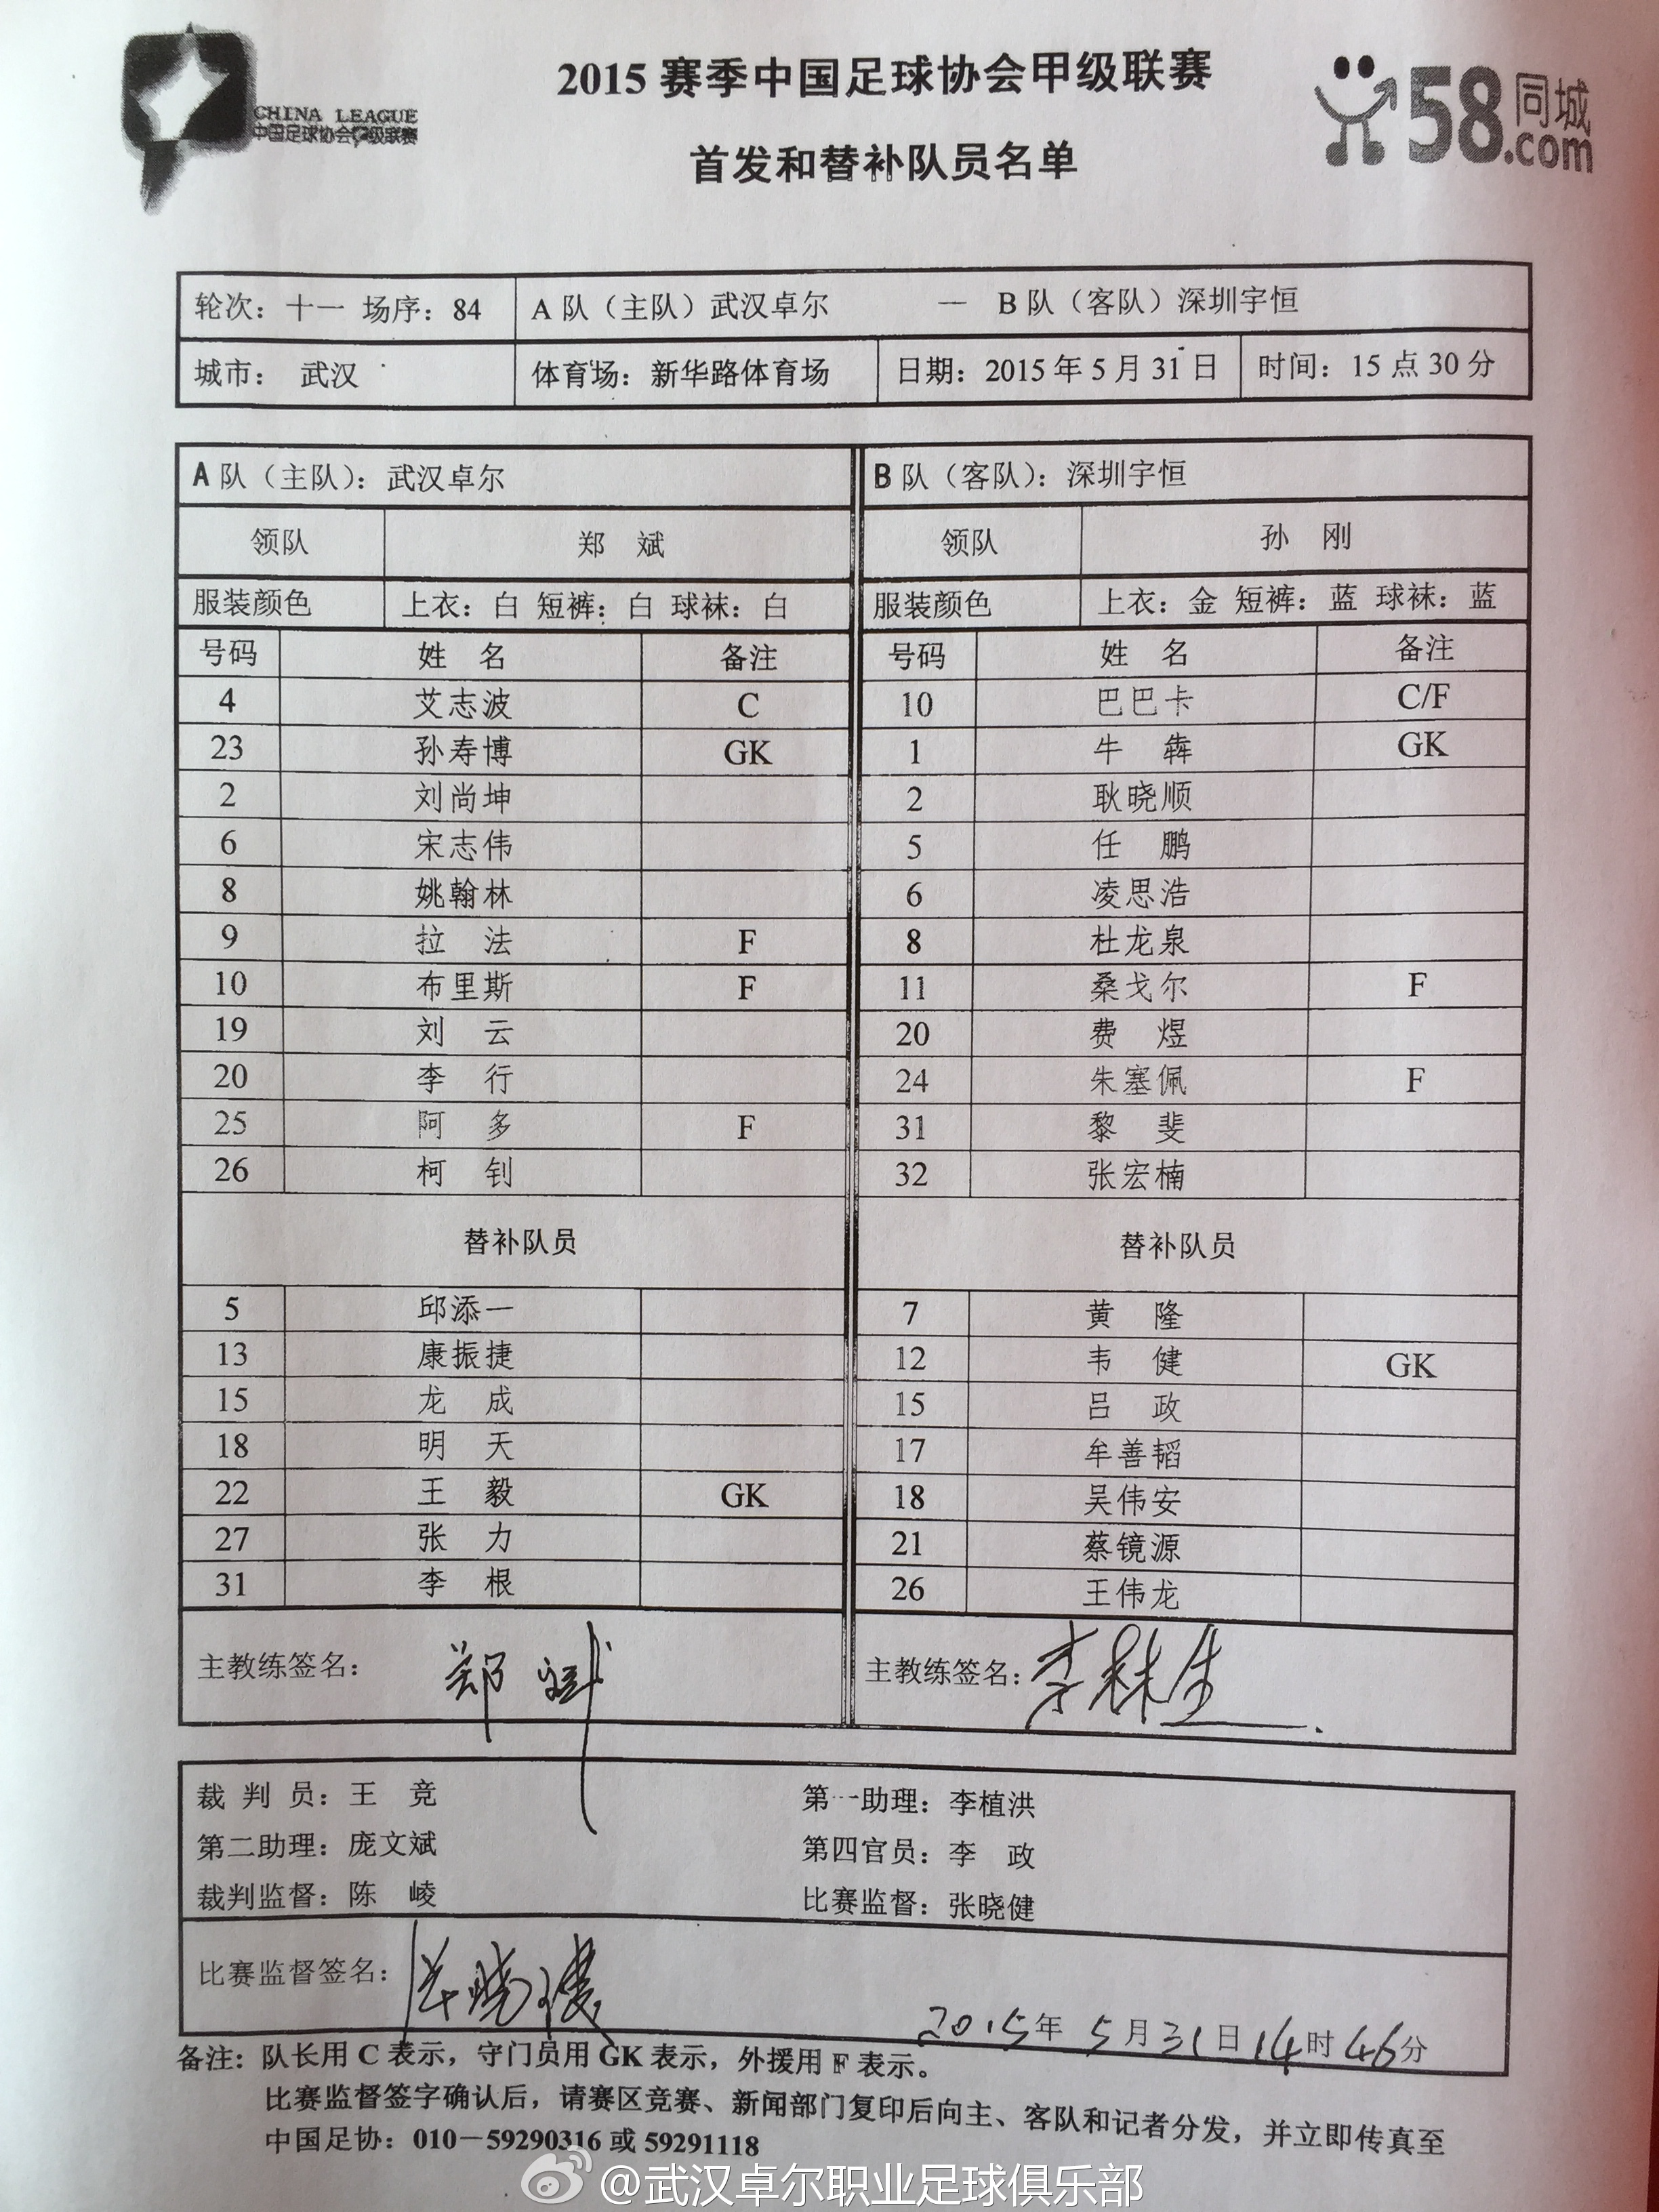 CHINA LEAGUE
中国足球协会甲级联赛
2015 赛季中国足球协会甲级联赛
首发和替补队员名单
58同城.com
轮次：十一 场序：84 A 队（主队）武汉卓尔 — B 队（客队）深圳宇恒
城市： 武汉 体育场：新华路体育场 日期：2015 年 5 月 31 日 时间：15 点 30 分
A 队（主队）：武汉卓尔 B 队（客队）：深圳宇恒
领队 郑 斌 领队 孙 刚
服装颜色 上衣：白 短裤：白 球袜：白 服装颜色 上衣：金 短裤：蓝 球袜：蓝
号码 姓 名 备注 号码 姓 名 备注
4 艾志波 C 10 巴巴卡 C/F
23 孙寿博 GK 1 牛 犇 GK
2 刘尚坤 2 耿晓顺
6 宋志伟 5 任 鹏
8 姚翰林 6 凌思浩
9 拉 法 F 8 杜龙泉
10 布里斯 F 11 桑戈尔 F
19 刘 云 20 费 煜
20 李 行 24 朱塞佩 F
25 阿 多 F 31 黎 斐
26 柯 钊 32 张宏楠
替补队员 替补队员
5 邱添一 7 黄 隆
13 康振捷 12 韦 健 GK
15 龙 成 15 吕 政
18 明 天 17 牟善韬
22 王 毅 GK 18 吴伟安
27 张 力 21 蔡镜源
31 李 根 26 王伟龙
主教练签名：郑斌 主教练签名：李林生
裁 判 员：王 竞 第一助理：李植洪
第二助理：庞文斌 第四官员：李 政
裁判监督：陈 崚 比赛监督：张晓健
比赛监督签名：张晓健
2015年 5月31日14时46分
备注：队长用 C 表示，守门员用 GK 表示，外援用 F 表示。
比赛监督签字确认后，请赛区竞赛、新闻部门复印后向主、客队和记者分发，并立即传真至
中国足协：010－59290316 或 59291118
@武汉卓尔职业足球俱乐部